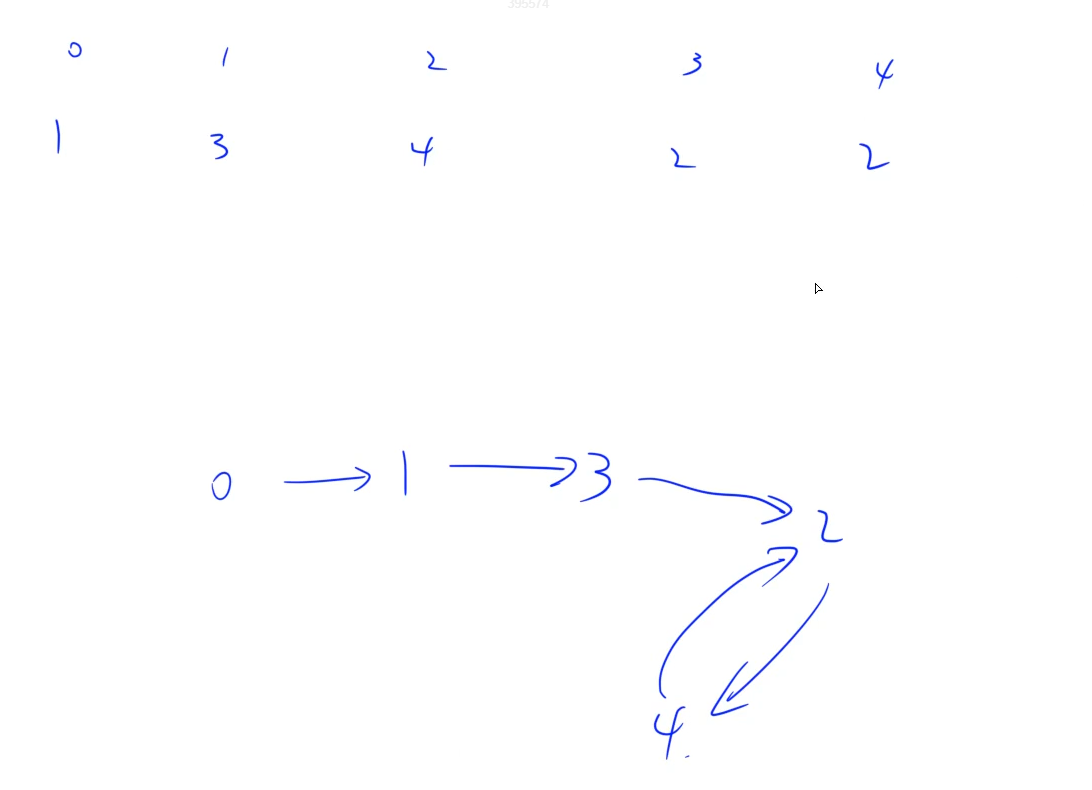 395574
0 1 2 3 4
1 3 4 2 2
0 → 1 → 3 → 2
4